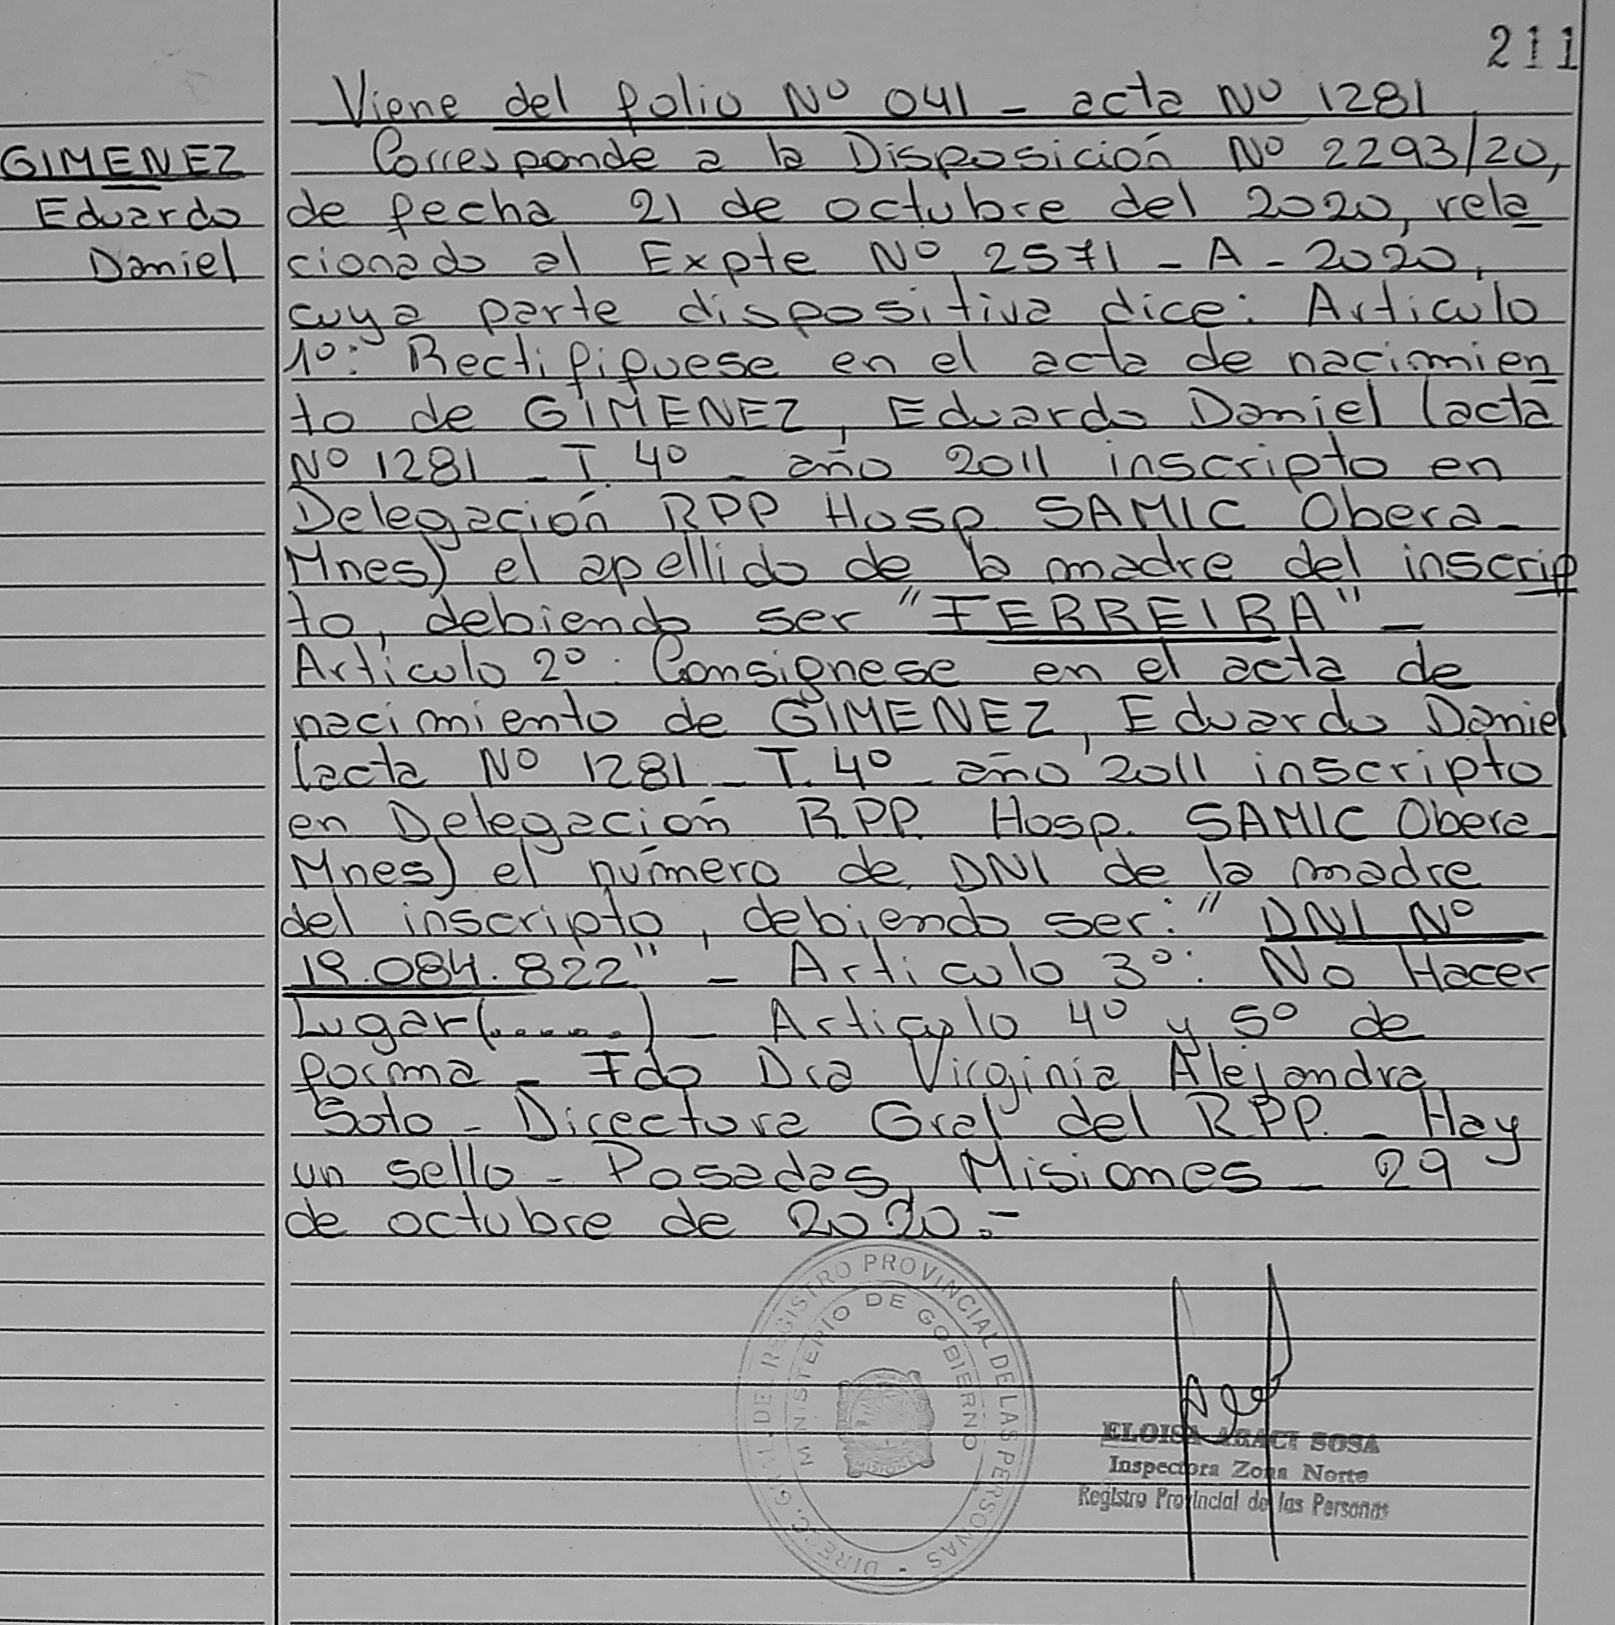 211
Viene del folio Nº 041 - acta Nº 1281
GIMENEZ
Eduardo
Daniel
Corresponde a la Disposición Nº 2293/20,
de fecha 21 de octubre del 2020, rela
cionado al Expte Nº 2571 - A - 2020,
cuya parte dispositiva dice: Articulo
1º: Rectififuese en el acta de nacimien
to de GIMENEZ, Eduardo Daniel (acta
Nº 1281 - T. 4º - año 2011 inscripto en
Delegación RPP Hosp. SAMIC Obera -
Mnes) el apellido de la madre del inscrip
to, debiendo ser "FERREIRA" -
Artículo 2º: Consignese en el acta de
nacimiento de GIMENEZ, Eduardo Daniel
(acta Nº 1281 - T. 4º - año 2011 inscripto
en Delegación R.P.P. Hosp. SAMIC Obera
Mnes) el número de DNI de la madre
del inscripto, debiendo ser: "DNI Nº
19.084.822" - Articulo 3º: No Hacer
Lugar(......) - Articulo 4º y 5º de
forma - Fdo Dra Virginia Alejandra
Soto - Directora Gral del R.P.P. - Hay
un sello - Posadas, Misiones - 29
de octubre de 2020.-
DIRECC. GRAL. DEL REGISTRO PROVINCIAL DE LAS PERSONAS
MINISTERIO DE GOBIERNO
MISIONES
ELOISA ARACI SOSA
Inspectora Zona Norte
Registro Provincial de las Personas